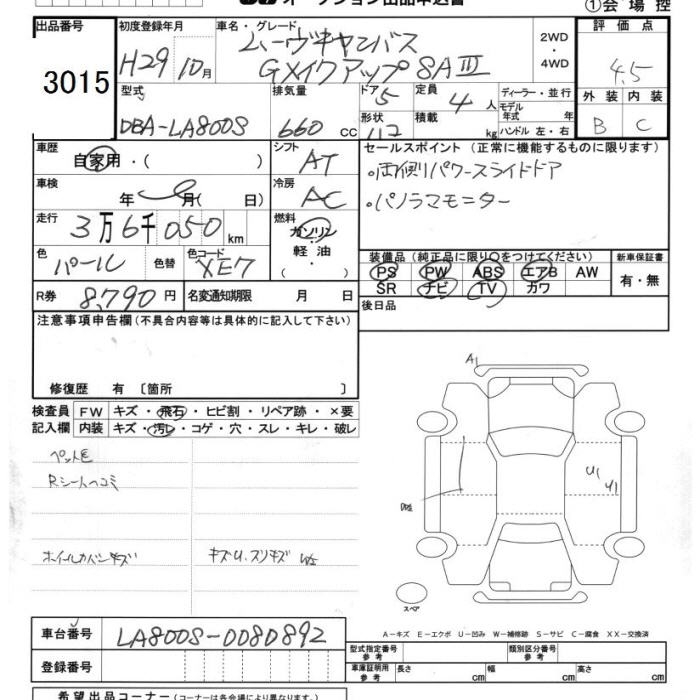 オークション出品申込書
①会場控
出品番号 3015
初度登録年月 H29 10月
車名・グレード ムーヴキャンバス
GXイクアップSAⅢ
2WD・4WD
評価点 4.5
外装 内装
B C
型式 DBA-LA800S
排気量 660 cc
ドア 5
形状
定員 4人
積載 kg
ディーラー・並行
モデル年式 年
ハンドル 左・右
車歴 自家用・( )
シフト AT
車検 年 月( 日)
冷房 AC
走行 3万6千050 km
燃料 ガソリン・軽油・
色 パール 色替
色コード XE7
R券 8,790円
名変通知期限 月 日
セールスポイント(正常に機能するものに限ります)
・両側パワースライドドア
・パノラマモニター
装備品(純正品に限り○をつけてください)
新車保証書
PS PW ABS エアB AW
有・無
SR ナビ TV カワ
後日品
注意事項申告欄(不具合内容等は具体的に記入して下さい)
修復歴 有〔箇所 〕
検査員記入欄
FW キズ・飛石・ヒビ割・リペア跡・×要
内装 キズ・汚レ・コゲ・穴・スレ・キレ・破レ
ペット毛
Rシートヘコミ
ホイールカバーキズ
キズU.スリキズ W2
A1
U1
U1
スペア
A-キズ E-エクボ U-凹み W-補修跡 S-サビ C-腐食 XX-交換済
車台番号 LA800S-0080892
登録番号
型式指定番号 参考
類別区分番号 参考
車庫証明用 参考
長さ cm
幅 cm
高さ cm
希望出品コーナー(コーナーは各会場により異なります。)